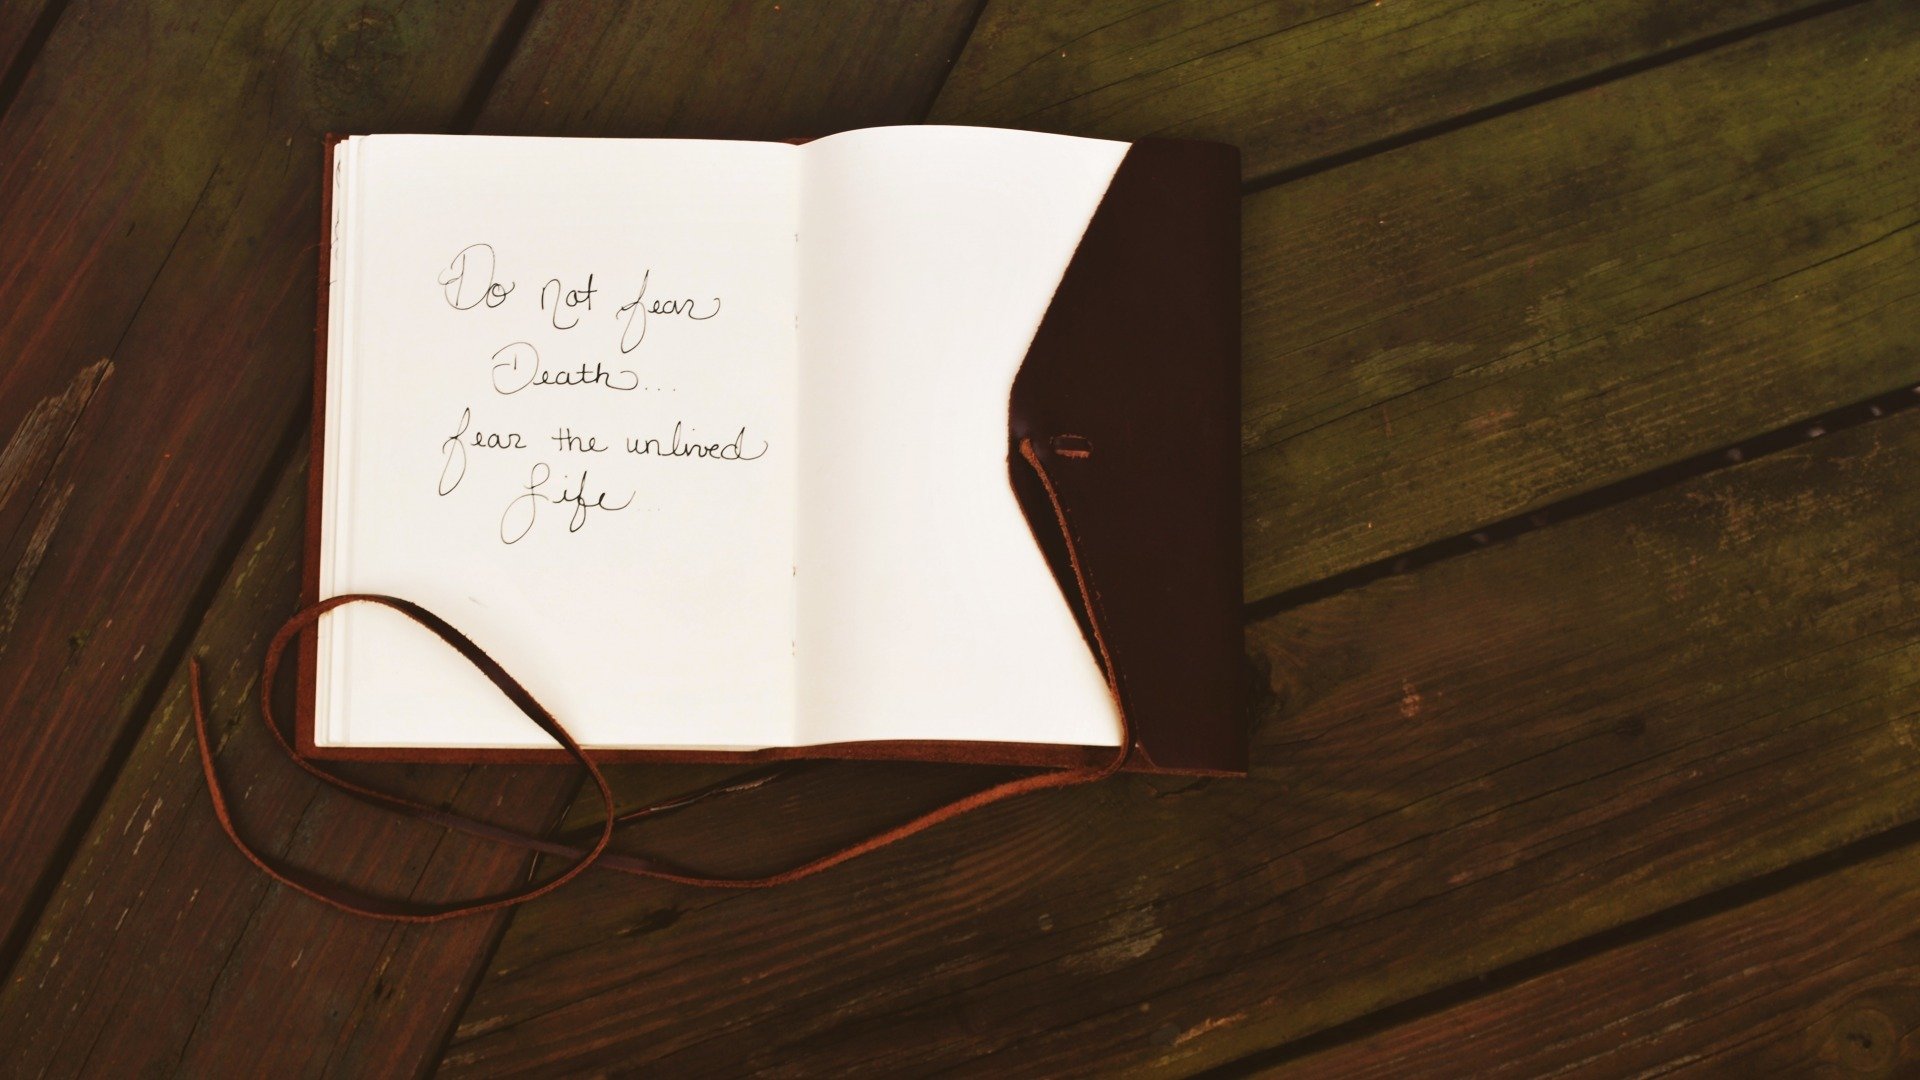 Do not fear
Death...
fear the unlived
Life...